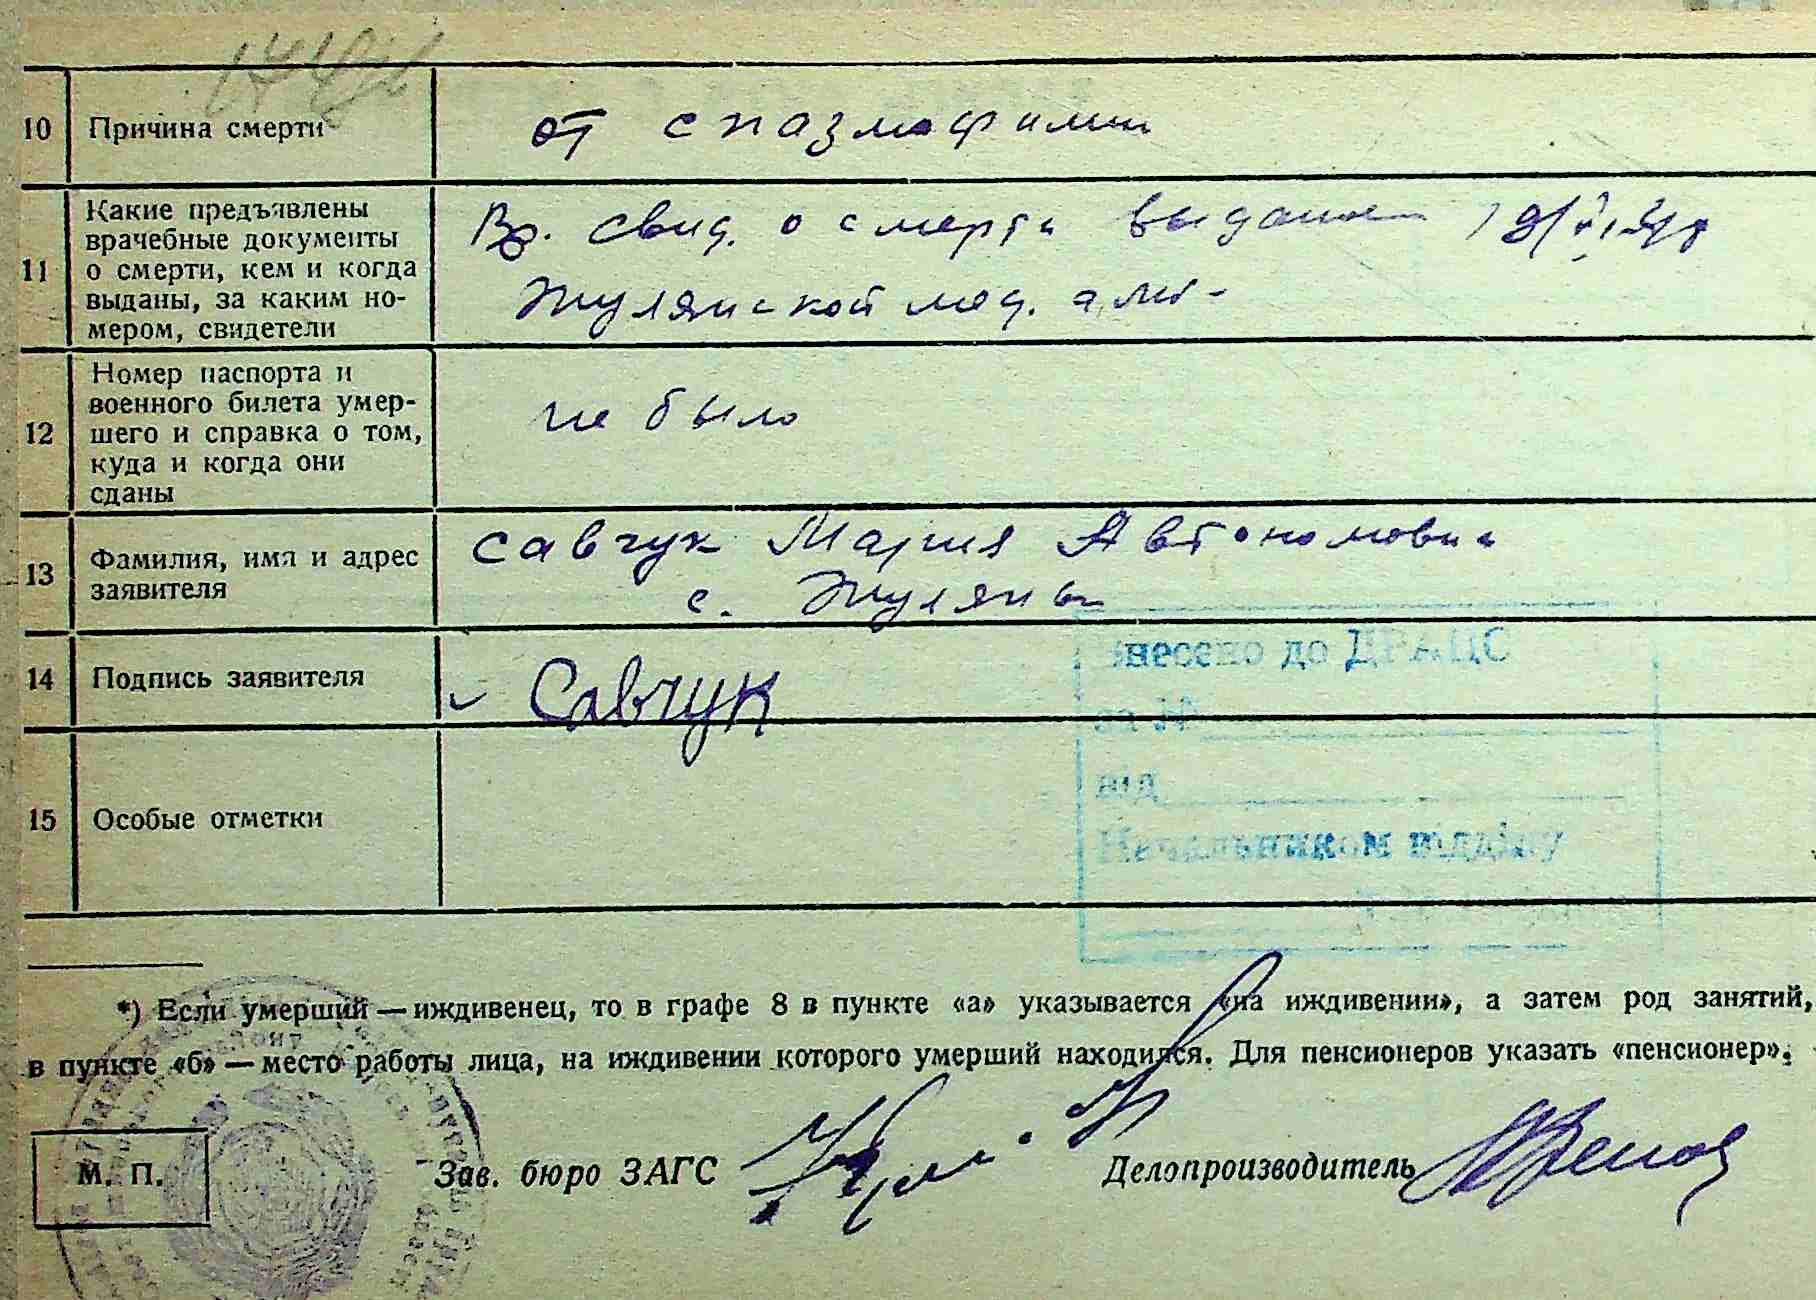 10 Причина смерти от спазмофилии
11 Какие предъявлены
врачебные документы
о смерти, кем и когда
выданы, за каким но-
мером, свидетели
Вр. свид. о смерти выданое
Жулянской мед. амб-
12 Номер паспорта и
военного билета умер-
шего и справка о том,
куда и когда они
сданы
не было
13 Фамилия, имя и адрес
заявителя
Савчук Мария Автономовна
с. Жуляны
Внесено до ДРАЦС
14 Подпись заявителя Савчук
за №
від
15 Особые отметки
Начальником відділу
*) Если умерший — иждивенец, то в графе 8 в пункте «а» указывается «на иждивении», а затем род занятий,
в пункте «б» — место работы лица, на иждивении которого умерший находился. Для пенсионеров указать «пенсионер».
М. П. Зав. бюро ЗАГС Делопроизводитель